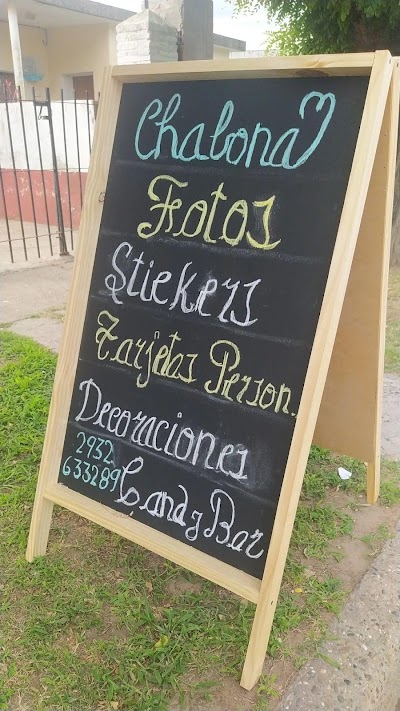 Chalona
Fotos
Stickers
Tarjetas Person.
Decoraciones
2932
633289
Candy Bar